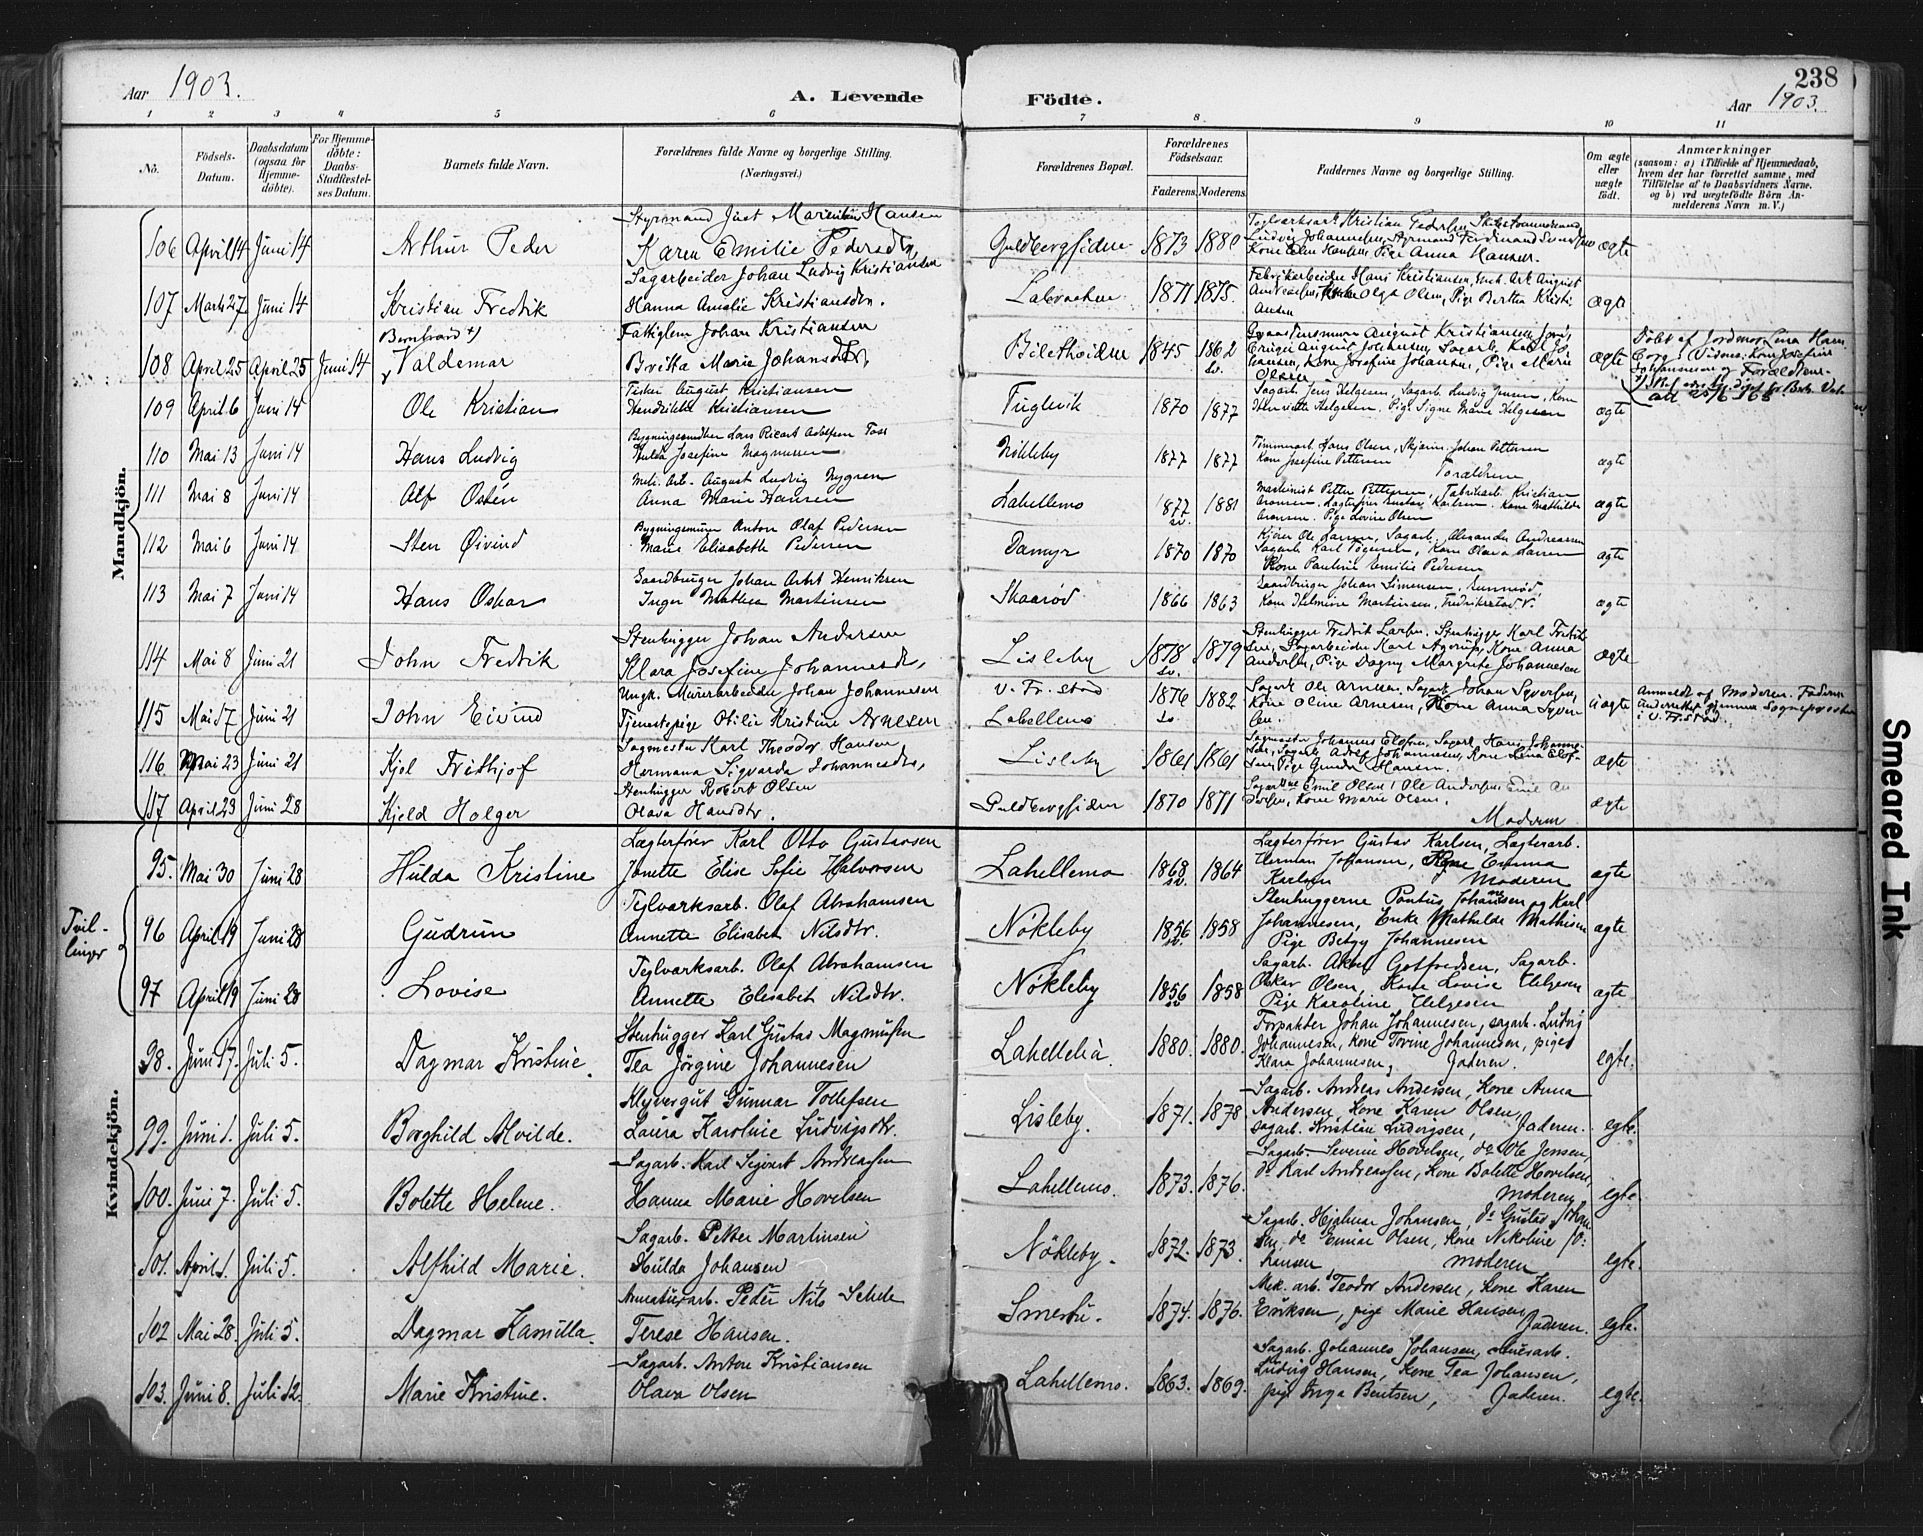 Aar 1903.
A. Levende
Födte.
238
Aar 1903.
1 2 3 4 5 6 7 8 9 10 11
No.
Födsels-
Datum.
Daabsdatum
(ogsaa for
Hjemme-
döbte).
For Hjemme-
döbte:
Daabs-
Stadfæstel-
ses Datum.
Barnets fulde Navn.
Forældrenes fulde Navne og borgerlige Stilling.
(Næringsvei.)
Forældrenes Bopæl.
Forældrenes
Födselsaar.
Faderens. Moderens.
Faddernes Navne og borgerlige Stilling.
Om ægte
eller
uægte
födt.
Anmærkninger
(saasom: a) i Tilfælde af Hjemmedaab,
hvem der har forrettet samme, med
Tilföielse af to Daabsvidners Navne.
og b) ved uægtefödte Börn An-
melderens Navn m. V.)
Mandkjön.
106 April 14 Juni 14 Arthur Peder
Styrmand Just Hansen
Karen Emilie Pedersdtr
Guldbergsiden 1873 1880
Kone Elen Hansen, Pige Anna Hansen.
ægte
107 Marts 27 Juni 14 Kristian Fredrik
Sagarbeider Johan Ludvig Kristiansen
Hanna Amalie Kristiansdtr.
1871 1875.
Fabrikarbeider Hans Kristiansen, August
Andreassen, Olga Olsen, Pige Bertha Kristi
ansen
ægte
108 April 25 April 25 Juni 14
Bernhard +)
Valdemar
Johan Kristiansen
Britta Marie Johansdtr,
1845 1862
sv.
August Kristiansen,
August Johansen, Sagarb. Karl Jo
hansen, Kone Josefine Johansen, Pige Marie
Olsen
ægte
Döbt af Jordmor Lina Ham
Kone Josefine
Johannesen og Forældrene.
109 April 6 Juni 14 Ole Kristian
Fisker August Kristiansen
Hendrikke Kristiansen
Fuglevik 1870 1877
Sagarb. Jens Helgesen, Sagarb. Ludvig Jensen, Kone
Henriette Helgesen. Pige Signe Marie Helgesen
ægte
110 Mai 13 Juni 14 Hans Ludvig
Hulda Josefine Magnussen
Nökleby 1877 1877
Hans Olsen, Johan Pettersen
Kone Josefine Pettersen Forældrene
ægte
111 Mai 8 Juni 14 Alf Osten
Mek. Arb. August Ludvig Nygren
Anna Marie Hansen
Lahellemo 1877 1881
sv.
Maskinist Petter Pettersen, Fabrikarb. Kristian
Aronsen. Lægterfører Gustav Karlsen. Kone Mathilde
Aronsen. Pige Lovise Olsen
ægte
112 Mai 6 Juni 14 Sten Öivind
Anton Olaf Pedersen
Marie Elisabeth Pedersen
Damyr 1870 1870
Kjører Ole Larsen, Sagarb. Alexander Andreassen
Sagarb. Karl Kone Olava Larsen
Kone Pauline Emilie Pedersen
ægte
113 Mai 7 Juni 14 Hans Oskar
Gaardbruger Johan Henriksen
Inger Mathea Martinsen
Skaaröd 1866 1863
Gaardbruger Johan Simensen,
Kone Helmine Martinsen, Fredrikstad V.
ægte
114 Mai 8 Juni 21 John Fredrik
Stenhugger Johan Andersen
Klara Josefine Johannesdtr,
Lisleby 1878 1879
sv.
Stenhugger Fredrik Larsen, Stenhugger Karl Fredrik
sen, Sagarbeider Karl Kone Anna
Andersen, Pige Dagny Margrete Johannesen
ægte
115 Mai 17 Juni 21 John Eivind
Ungk. Murerarbeider Johan Johannesen
Tjenestepige Otilie Kristine Arnesen
V. Fr.stad
Lahellemo
1876 1882
sv
Sagarb. Ole Arnesen. Sagarb. Johan Syversen,
Kone Oline Arnesen, Kone Anna Syver
sen.
uægte
Anmeldt af Moderen. Faderen
Sognepresten
i V. Fr.stad
116 Mai 23 Juni 21 Kjel Frithjof
Sagmester Karl Theodor Hansen
Hermana Sigvarda Johannesdtr,
Lisleby 1861 1861
Sagmester Johannes Elofsen, Sagarb. Hans Johanne-
sen, Sagarb. Adolf Johannesen, Kone Lina Elof-
sen, Pige Gunda Hansen.
ægte
117 April 23 Juni 28 Kjeld Holger
Stenhugger Robert Olsen
Olava Hansdtr.
Guldbergsiden 1870 1871
Emil Olsen, Ole Andersen, Emil An
dersen, Kone Marie Olsen.
Moderen
ægte
Tvil-
linger
Kvindekjön.
95. Mai 30 Juni 28 Hulda Kristine
Lægterfører Karl Otto Gustavsen
Janette Elise Sofie Halvorsen
Lahellemo 1868 1864
sv.
Lægterfører Gustav Karlsen, Lægterarb.
Herman Johansen, Kone Emma
Karlsen Moderen
ægte
96 April 19 Juni 28 Gudrun
Teglværksarb. Olaf Abrahamsen
Annette Elisabet Nilsdtr.
Nökleby 1856 1858
sv.
Stenhuggerne Pontus Johannesen og Karl
Johannesen, Enke Mathilde Mathisen
Pige Betzy Johannesen
ægte
97 April 19 Juni 28 Lovise
Teglværksarb. Olaf Abrahamsen
Annette Elisabet Nilsdtr.
Nökleby 1856 1858
sv
Sagarb. Aksel Gotfredsen, Sagarb.
Oskar Olsen, Kone Lovise Helgesen
Pige Karoline Helgesen
ægte.
98. Juni 17. Juli 5. Dagmar Kristine.
Stenhugger Karl Gustav Magnussen
Tea Jörgine Johannesen
Lahellelia. 1880. 1880.
Forpakter Johan Johannesen, sagarb. Ludvig
Johannesen, kone Torine Johannesen, pige
Klara Johannesen, Faderen.
egte.
99. Juni 1. Juli 5. Borghild Alvilde.
Klyvergut Gunnar Tollefsen
Laura Karoline Ludvigsdtr.
Lisleby. 1871. 1878
Sagarb. Andreas Andersen, kone Anna
Andersen, kone Karen Olsen,
sagarb. Kristian Ludvigsen, Faderen.
egte.
100. Juni 7. Juli 5. Bolette Helene.
Sagarb. Karl Sigvart Andreassen
Hanna Marie Hovelsen
Lahellemo. 1873. 1876.
Sagarb. Severin Hovelsen, do Ole Jensen,
do Karl Andreassen, kone Bolette Hovelsen,
moderen
egte.
101. April 1. Juli 5. Alfhild Marie.
Sagarb. Petter Martinsen
Hulda Johansen
Nökleby. 1872. 1873.
Sagarb. Hjalmar Johansen, do Gustav Johan
sen, do Einar Olsen, kone Nikoline Jo-
hansen moderen
egte.
102 Mai 28. Juli 5. Dagmar Kamilla.
Armaturarb. Peder Nils Schele
Terese Hansen.
Smertu. 1874. 1876.
Mek. arb. Teodor Andersen, kone Karen
Eriksen, pige Marie Hansen, Faderen.
egte.
103. Juni 8. Juli 12. Marie Kristine.
Sagarb. Anton Kristiansen
Olava Olsen
Lahellemo. 1863. 1869.
Sagarb. Johannes Johansen,
Ludvig Hansen, kone Tea Johansen,
pige Inga Bentsen, Faderen.
egte.
Smeared Ink